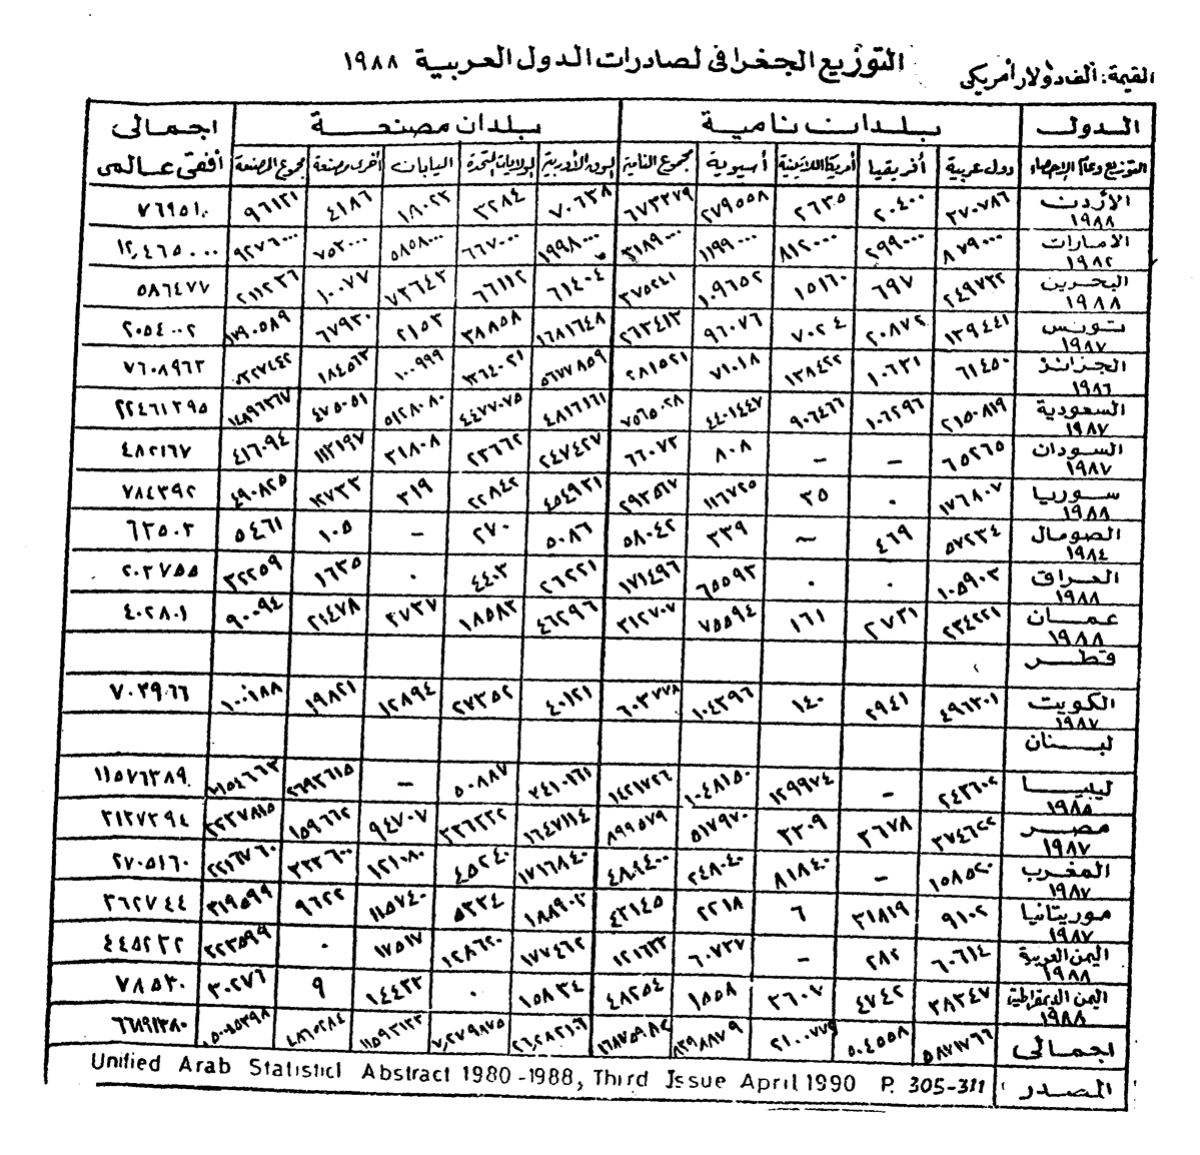 التوزيع الجغرافي لصادرات الدول العربية ١٩٨٨
القيمة: ألف دولار أمريكي
الدول بلدان نامية بلدان مصنعة اجمالى
التوزيع وعام الإحصاء دول عربية أفريقيا أمريكا اللاتينية أسيوية مجموع النامية السوق الأوربية الولايات المتحدة اليابان أخرى مصنعة مجموع المصنعة أفقى عالمى
الأردن ١٩٨٨ ٣٧٠٧٨٦ ٢٠٤٠٠ ٢٦٣٥ ٢٧٩٥٥٨ ٦٧٣٣٧٩ ٧٠٦٣٨ ٣٢٨٤ ١٨٠٢٣ ٤١٨٦ ٩٦١٣١ ٧٦٩٥١٠
الأمارات ١٩٨٢ ٨٧٩٠٠٠ ٢٩٩٠٠٠ ٨١٢٠٠٠ ١١٩٩٠٠٠ ٣١٨٩٠٠٠ ١٩٩٨٠٠٠ ٦٦٧٠٠٠ ٥٨٥٨٠٠٠ ٧٥٣٠٠٠ ٩٢٧٦٠٠٠ ١٢,٤٦٥٠٠٠
البحرين ١٩٨٨ ٢٤٩٧٣٢ ٦٩٧ ١٥١٦٠ ١٠٩٦٥٢ ٣٧٥٢٤١ ٦١٤٠٤ ٦٦١١٢ ٧٣٦٤٣ ١٠٠٧٧ ٢١١٢٣٦ ٥٨٦٤٧٧
تونس ١٩٨٧ ١٣٩٤٤١ ٢٠٨٧٢ ٧٠٢٤ ٩٦٠٧٦ ٢٦٣٤١٣ ١٦٨١٦٤٨ ٣٨٨٥٨ ٢١٥٣ ٦٧٩٣٠ ١٧٩٠٥٨٩ ٢٠٥٤٠٠٢
الجزائر ١٩٨٦ ٦١٤٥٠ ١٠٦٣١ ١٣٨٤٢٢ ٧١٠١٨ ٢٨١٥٢١ ٥٦٧٧٨٥٩ ١٣٦٤٠٢١ ١٠٠٩٩٩ ١٨٤٥٦٣ ٧٣٢٧٤٤٢ ٧٦٠٨٩٦٣
السعودية ١٩٨٧ ٢١٥٠٨١٩ ١٠٦٢٩٦ ٩٠٦٤٦٦ ٤٤٠١٤٤٧ ٧٥٦٥٠٢٨ ٤٨١٦١٦١ ٤٤٧٧٠٧٥ ٥١٢٨٠٨٠ ٤٧٥٠٥١ ١٤٨٩٦٣٦٧ ٢٢٤٦١٣٩٥
السودان ١٩٨٧ ٦٥٢٦٥ – – ٨٠٨ ٦٦٠٧٣ ٢٤٧٤٢٧ ٢٣٦٦٢ ٣١٨٠٨ ١١٣١٩٧ ٤١٦٠٩٤ ٤٨٢١٦٧
سوريا ١٩٨٨ ١٧٦٨٠٧ ٠ ٣٥ ١١٦٧٢٥ ٢٩٣٥٦٧ ٤٥٤٩٣١ ٢٢٨٤٢ ٣١٩ ١٢٧٣٣ ٤٩٠٨٢٥ ٧٨٤٣٩٢
الصومال ١٩٨٤ ٥٧٢٣٤ ٤٦٩ – ٣٣٩ ٥٨٠٤٢ ٥٠٨٦ ٢٧٠ – ١٠٥ ٥٤٦١ ٦٣٥٠٣
العراق ١٩٨٨ ١٠٥٩٠٣ ٠ ٠ ٦٥٥٩٣ ١٧١٤٩٦ ٢٦٢٢١ ٤٤٠٣ ٠ ١٦٣٥ ٣٢٢٥٩ ٢٠٣٧٥٥
عمان ١٩٨٨ ٢٣٤٢٢١ ٢٧٣١ ١٦١ ٧٥٥٩٤ ٣١٢٧٠٧ ٤٦٢٩٦ ١٨٥٨٣ ٣٧٣٧ ٢١٤٧٨ ٩٠٠٩٤ ٤٠٢٨٠١
قطر
الكويت ١٩٨٧ ٤٩٦٣٠١ ٢٩٤١ ١٤٠ ١٠٤٣٩٦ ٦٠٣٧٧٨ ٤٠١٢١ ٢٧٣٥٢ ١٢٨٩٤ ١٩٨٢١ ١٠٠١٨٨ ٧٠٣٩٦٦
لبنان
ليبيا ١٩٨٥ ٢٤٣٦٠٢ – ١٢٩٩٧٤ ١٠٤٨١٥٠ ١٤٢١٧٢٦ ٧٤١٠١٦١ ٥٠٨٨٧ – ٢٦٩٣٦١٥ ١٠١٥٤٦٦٣ ١١٥٧٦٣٨٩
مصر ١٩٨٧ ٣٧٤٦٢٢ ٣٦٧٨ ٣٣٠٩ ٥١٧٩٧٠ ٨٩٩٥٧٩ ١٦٤٧١١٤ ٣٣٦٣٣٢ ٩٤٧٠٧ ١٥٩٦٦٢ ٢٢٣٧٨١٥ ٣١٣٧٣٩٤
المغرب ١٩٨٧ ١٥٨٥٢٠ – ٨١٨٤٠ ٢٤٨٠٤٠ ٤٨٨٤٠٠ ١٧١٦٨٤٠ ٤٥٢٤٠ ١٢١٠٨٠ ٣٣٣٦٠٠ ٢٢١٦٧٦٠ ٢٧٠٥١٦٠
موريتانيا ١٩٨٧ ٩١٠٢ ٣١٨١٩ ٦ ٢٢١٨ ٤٣١٤٥ ١٨٨٩٠٣ ٥٣٣٤ ١١٥٧٤٠ ٩٦٢٢ ٣١٩٥٩٩ ٣٦٢٧٤٤
اليمن العربية ١٩٨٨ ٦٠٦١٤ ٢٨٢ – ٦٠٧٣٧ ١٢١٦٣٣ ١٧٧٤٦٢ ١٢٨٦٢٠ ١٧٥١٧ ٠ ٣٢٣٥٩٩ ٤٤٥٢٣٢
اليمن الديمقراطية ١٩٨٨ ٣٨٣٤٧ ٤٧٤٢ ٣٦٠٧ ١٥٥٨ ٤٨٢٥٤ ١٥٨٣٤ ٠ ١٤٤٣٣ ٩ ٣٠٢٧٦ ٧٨٥٣٠
اجمالى ٥٨٧١٧٦٦ ٥٠٤٥٥٨ ٢١٠٠٧٧٩ ٨٣٩٨٨٧٩ ١٦٨٧٥٩٨٢ ٢٦,٢٨٢١٠٦ ٧,٢٧٩٨٧٥ ١١٥٩٣١٢٣ ٤٨٦٠٢٨٤ ٥٠٠١٥٣٩٨ ٦٦٨٩١٣٨٠
المصدر Unified Arab Statisticl Abstract 1980-1988, Third Issue April 1990 P. 305-311